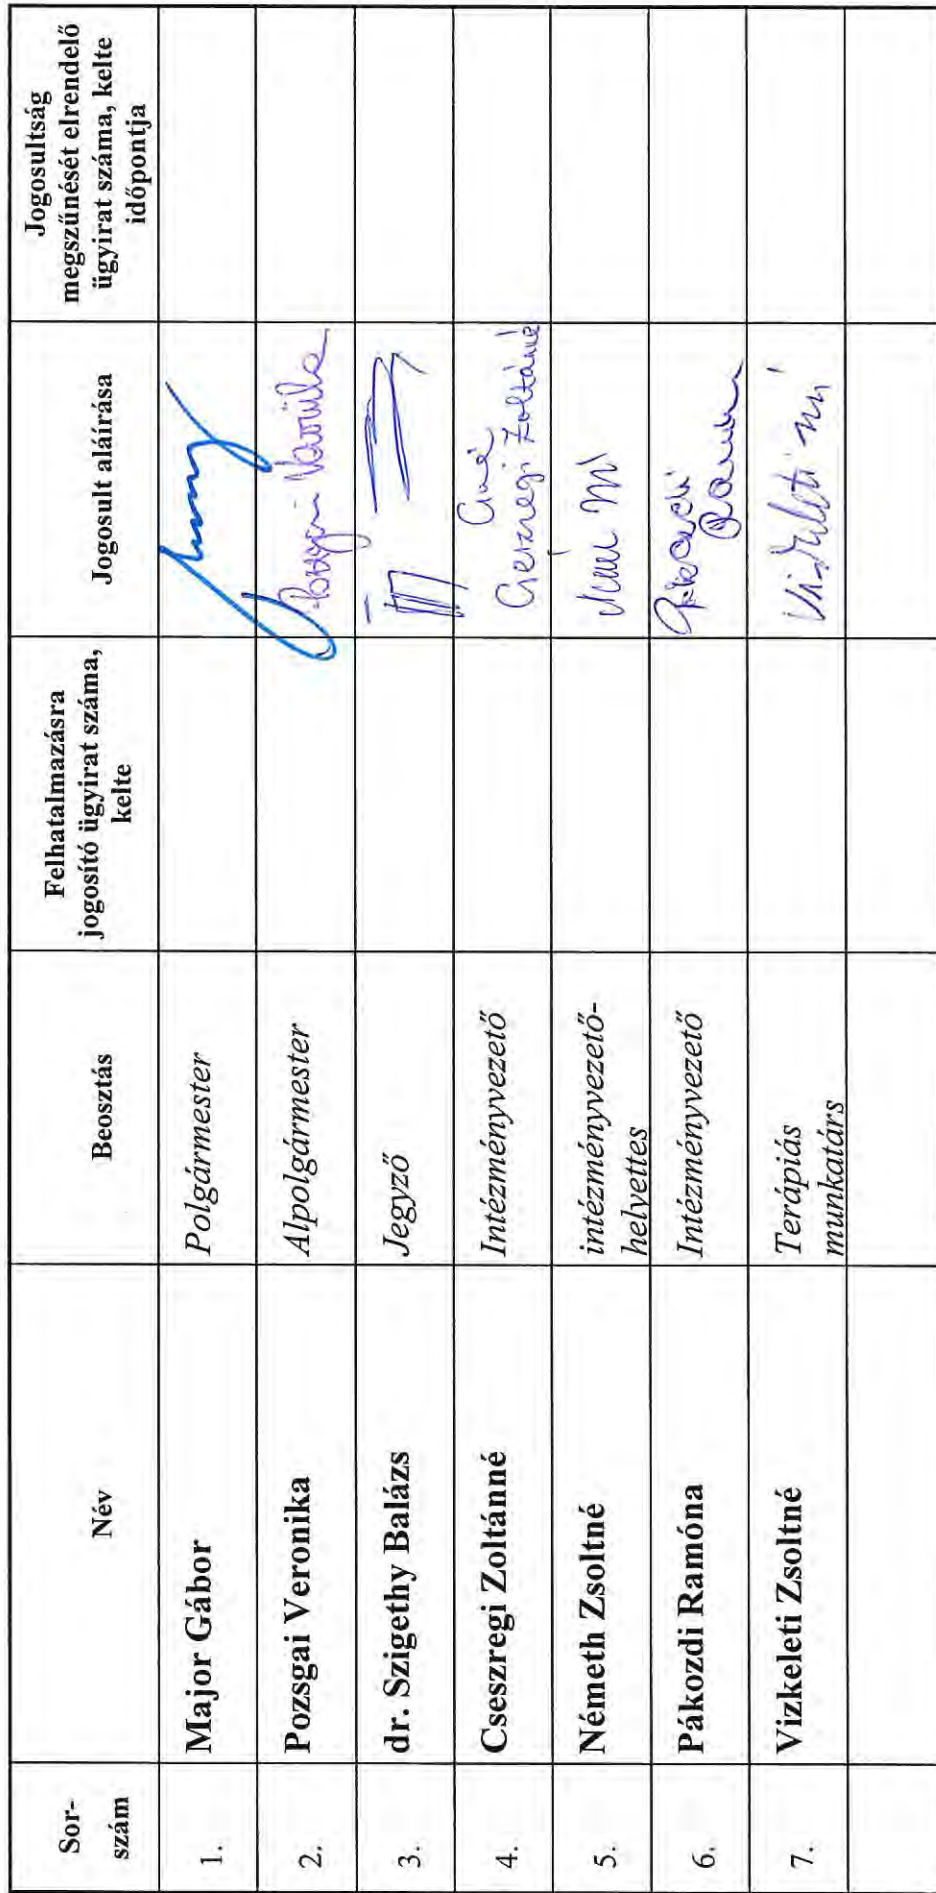 Sor-
szám
Név
Beosztás
Felhatalmazásra
jogosító ügyirat száma,
kelte
Jogosult aláírása
Jogosultság
megszűnését elrendelő
ügyirat száma, kelte
időpontja
1. Major Gábor Polgármester
2. Pozsgai Veronika Alpolgármester Pozsgai Veronika
3. dr. Szigethy Balázs Jegyző
4. Cseszregi Zoltánné Intézményvezető Cseszregi Zoltánné
5. Németh Zsoltné intézményvezető-
helyettes
6. Pákozdi Ramóna Intézményvezető Pákozdi
Ramóna
7. Vizkeleti Zsoltné Terápiás
munkatárs